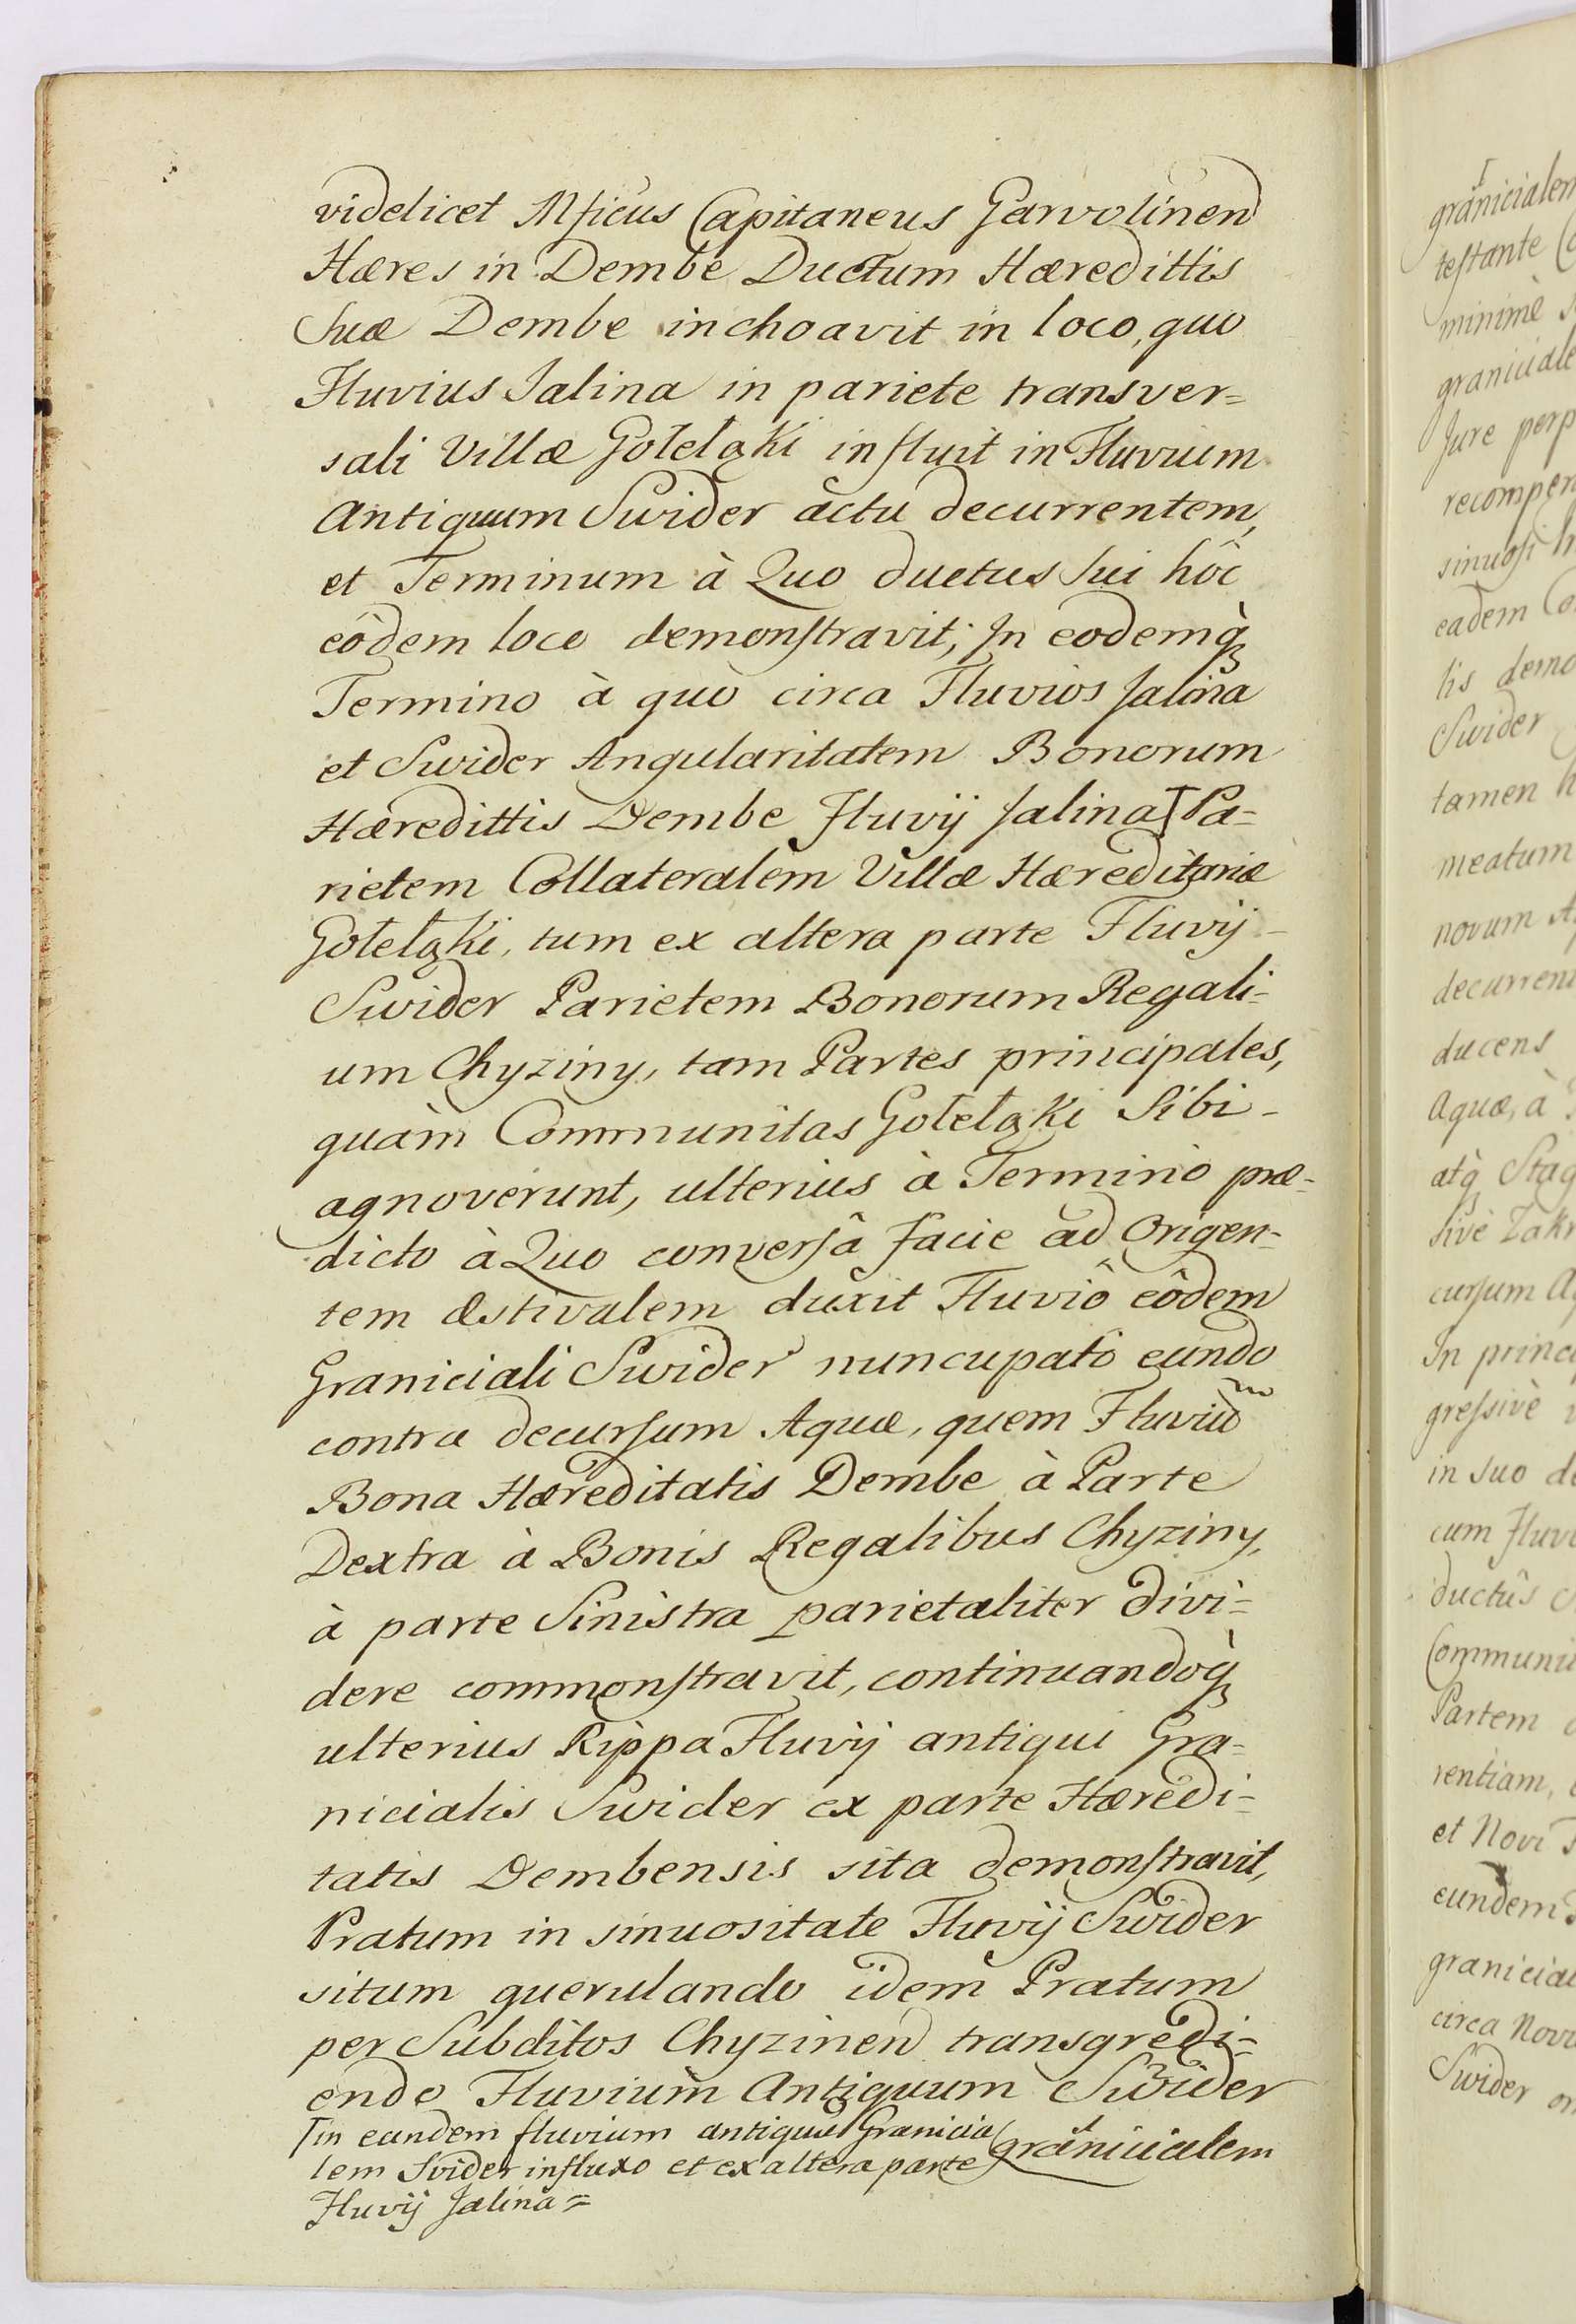 videlicet Mficus Capitaneus Garvolinen
Hæres in Dembe Ductum Hæredittis
Suæ Dembe inchoavit in loco, quo
Fluvius Jalina in pariete transver=
sali Villæ Gołełąki influit in Fluvium
Antiquum Swider actu decurrentem,
et Terminum à Quo ductus Sui hôc
eôdem loco demonſtravit; In eodemq̀
Termino à quò circa Fluvios Jalina
et Swider Angularitatem Bonorum
Hæredittis Dembe Fluvij Jalina ꟾ Pa=
rietem Collateralem Villæ Hæreditariæ
Gołełąki, tum ex altera parte Fluvij
Swider Parietem Bonorum Regali=
um Chyziny, tam Partes principales,
quàm Communitas Gołełąki Sibi
agnoverunt, ulterius à Termino præ=
dicto à Quo converſâ facie ad Origen=
tem Æstivalem duxit Fluviô eôdem
Graniciali Swider nuncupato eundo
contra decurſum Aquæ, quem Fluviũ
Bona Hæreditatis Dembe à Parte
Dextra à Bonis Regalibus Chyziny,
à parte Sinistra parietaliter divi=
dere commonſtravit, continuandoq̀
ulterius Rippa Fluvij antiqui Gra=
nicialis Swider ex parte Hæredi=
tatis Dembensis sita demonſtravit,
Pratum in sinuositate Fluvij Swider
situm querulando idem Pratum
per Subditos Chyzinen transgredi=
endo Fluvium Antiquum Swider
granicialem
ꟾ in eundem fluvium antiquũ Granicia
lem Svider influxo et ex altera parte
Fluvij Jalina =
granicialem
teſtante
minimè
graniciale
Jure perp
recompen
sinuoſi
eadem
lis demo
Swider
tamen
meatum
novum
decurrent
ducens
Aquæ, à
atq̀ Stag
sivè
curſum
In princ
greſsivè
in suo
cum Fluv
ductûs
Communi
Partem
rentiam,
et Novi
eundem
granicial
circa Novu
Swider